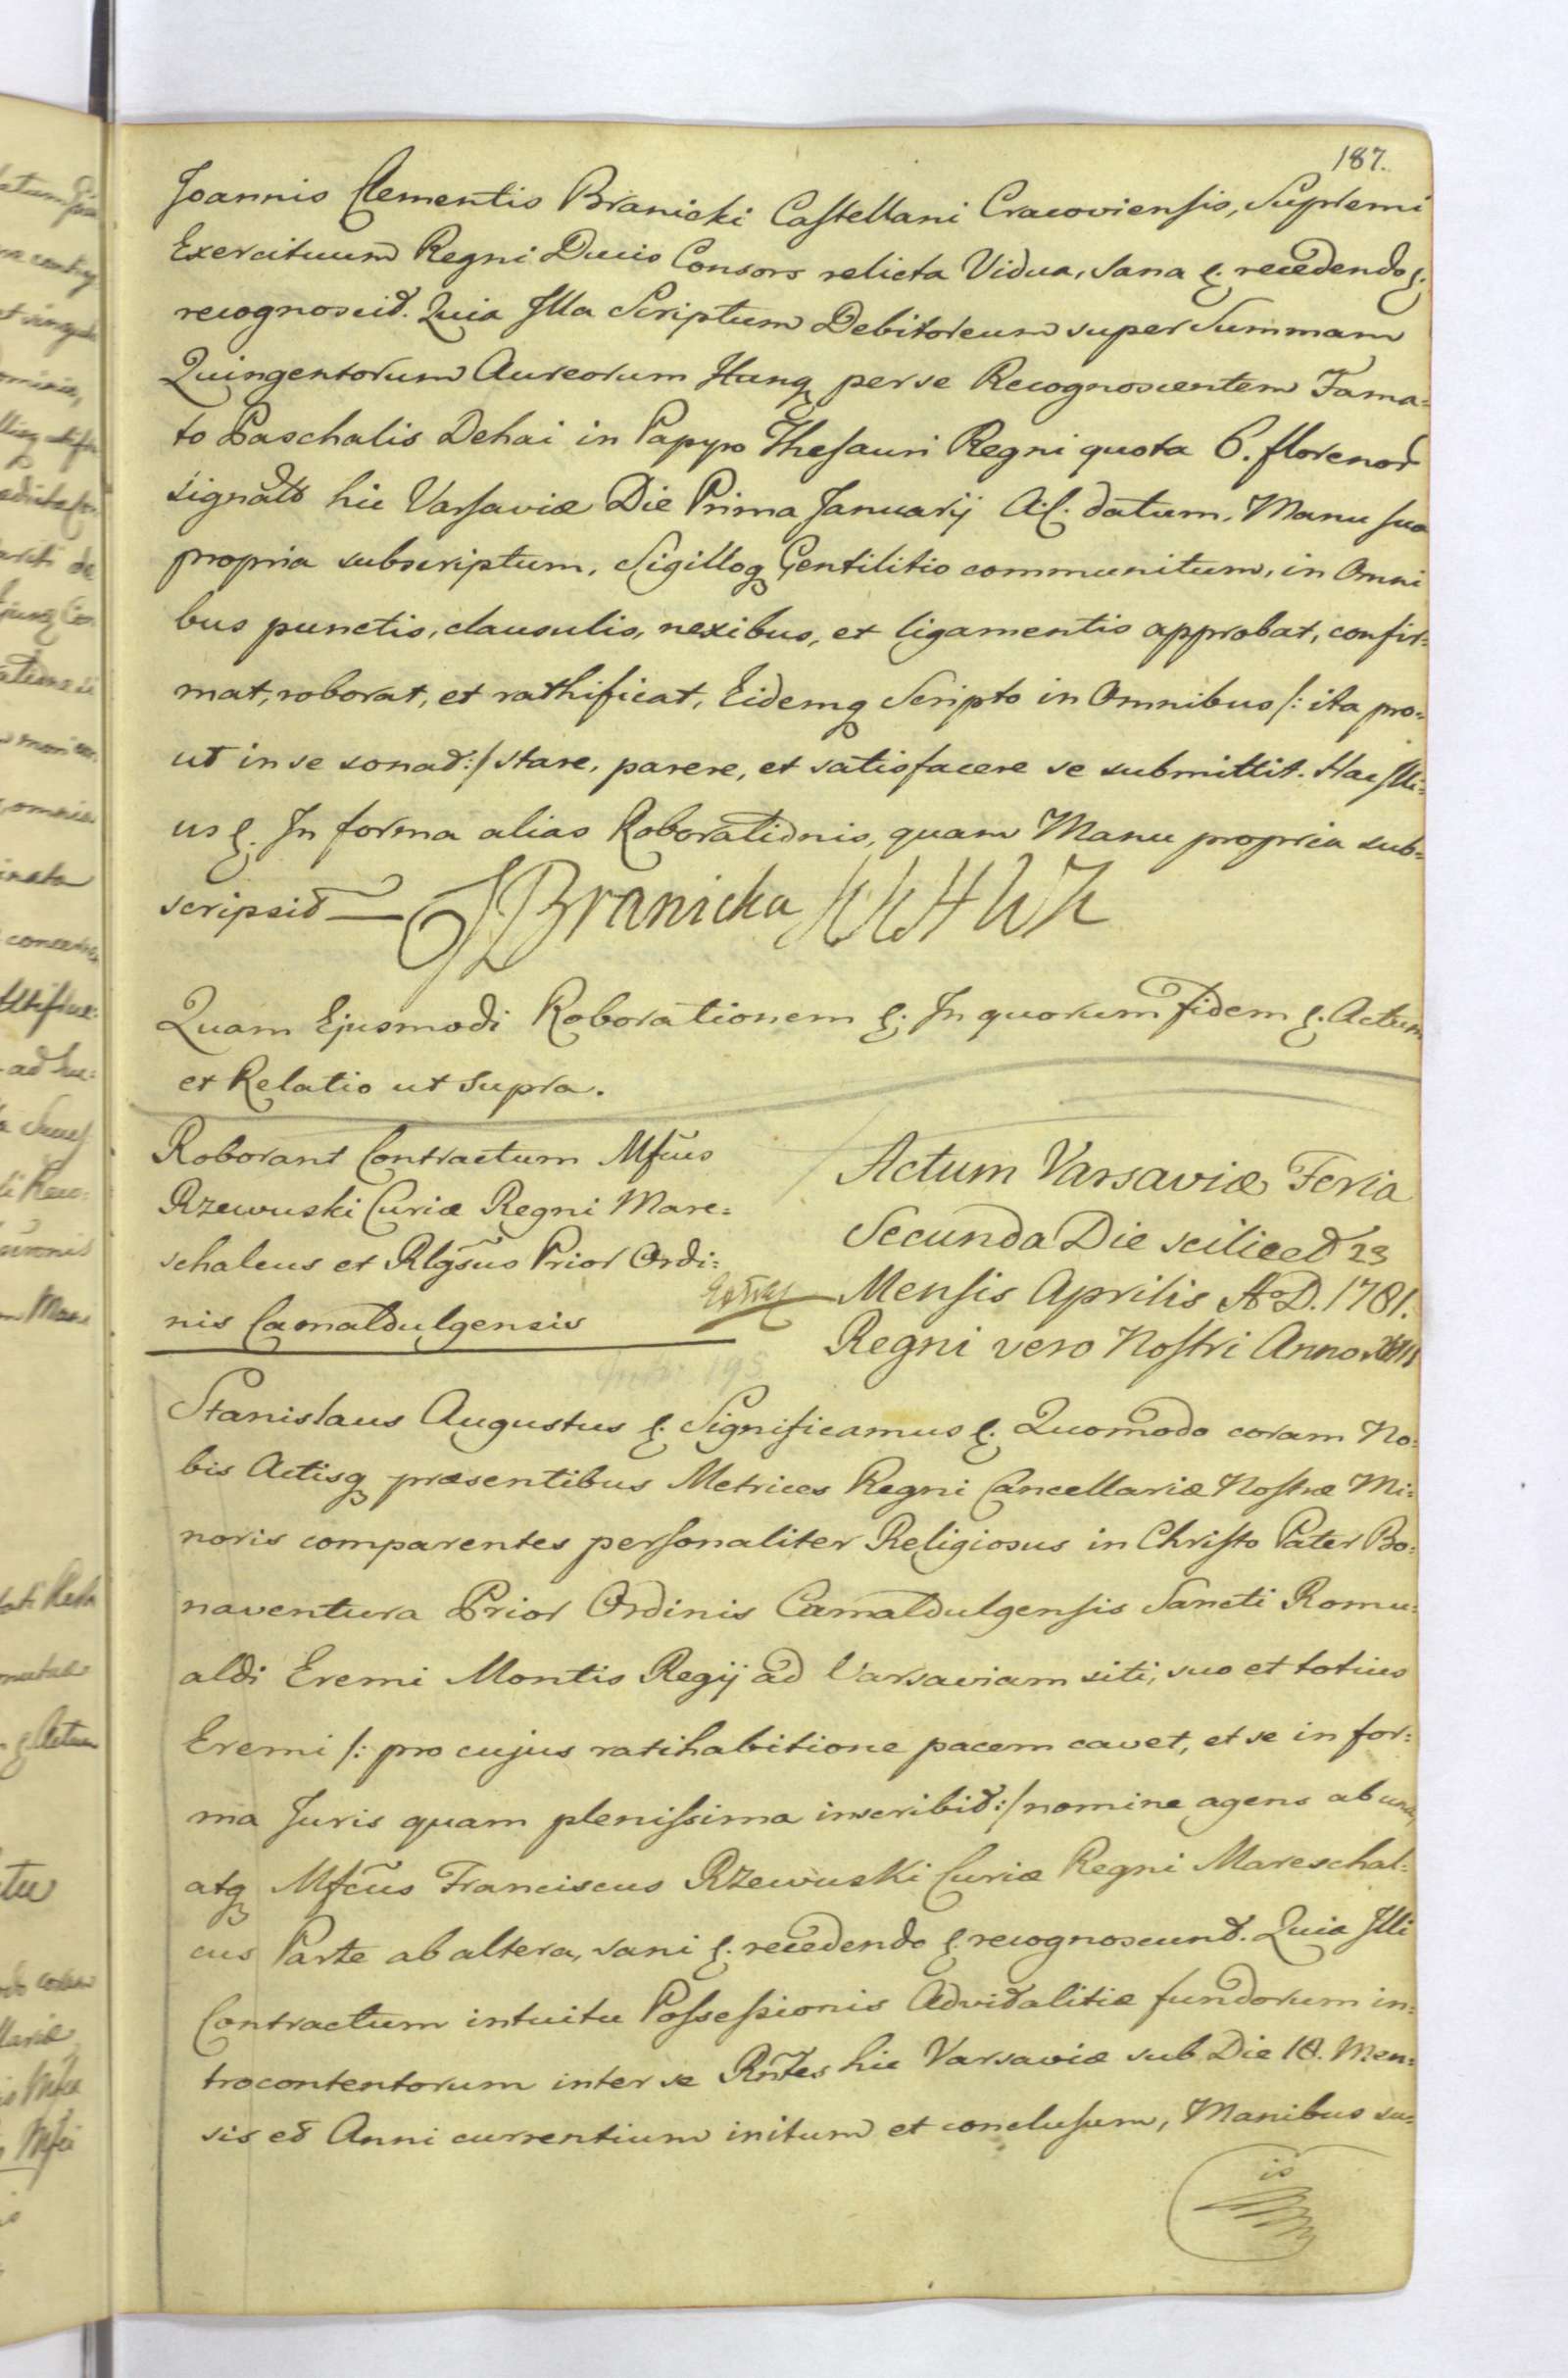 187.
Joannis Clementis Branicki Castellani Cracoviensis, Supremi
Exercituum Regni Ducis Consors relicta Vidua, sana &. recedendo &.
recognoscit. Quia Illa Scriptum Debitoreum super Summam
Quingentorum Aureorum Hung per se Recognoscentem Fama=
to Paschalis Dehai in Papyro Thesauri Regni quota 6. florenor
signato hic Varsaviæ Die Prima Januarij A.C. datum, Manu sua
propria subscriptum, Sigilloq Gentilitio communitum, in Omni
bus punctis, clausulis, nexibus, et ligamentis approbat, confir=
mat, roborat, et rathificat, Eidemq Scripto in Omnibus /: ita pro=
ut in se sonat :/ stare, parere, et satisfacere se submittit. Hac Illi=
us &. In forma alias Roborationis, quam Manu propria sub=
scripsit — JBranicka KKHWK
Quam Ejusmodi Roborationem &. In quorum fidem &. Actum
et Relatio ut supra.
Roborant Contractum Mfcus
Rzewuski Curiæ Regni Mare=
schalcus et Rlgsus Prior Ordi=
nis Camaldulgensis
Actum Varsaviæ Feria
Secunda Die scilicet 23
Mensis Aprilis A.D. 1781.
Regni vero Nostri Anno
195
Stanislaus Augustus &. Significamus &. Quomodo coram No=
bis Actisq præsentibus Metrices Regni Cancellariæ Nostræ Mi=
noris comparentes personaliter Religiosus in Christo Pater Bo=
naventura Prior Ordinis Camaldulgensis Sancti Romu=
aldi Eremi Montis Regij ad Varsaviam siti, suo et totius
Eremi /: pro cujus ratihabitione pacem cavet, et se in for=
ma Juris quam plenissima inscribit :/ nomine agens ab una,
atq Mfcus Franciscus Rzewuski Curiæ Regni Mareschal=
cus Parte ab altera, sani &. recedendo &. recognoscunt. Quia Illi
Contractum intuitu Possessionis Advitalitiæ fundorum in=
trocontentorum inter se Rntes hic Varsaviæ sub Die 18. Men=
sis et Anni currentium initum et conclusum, Manibus su=
is